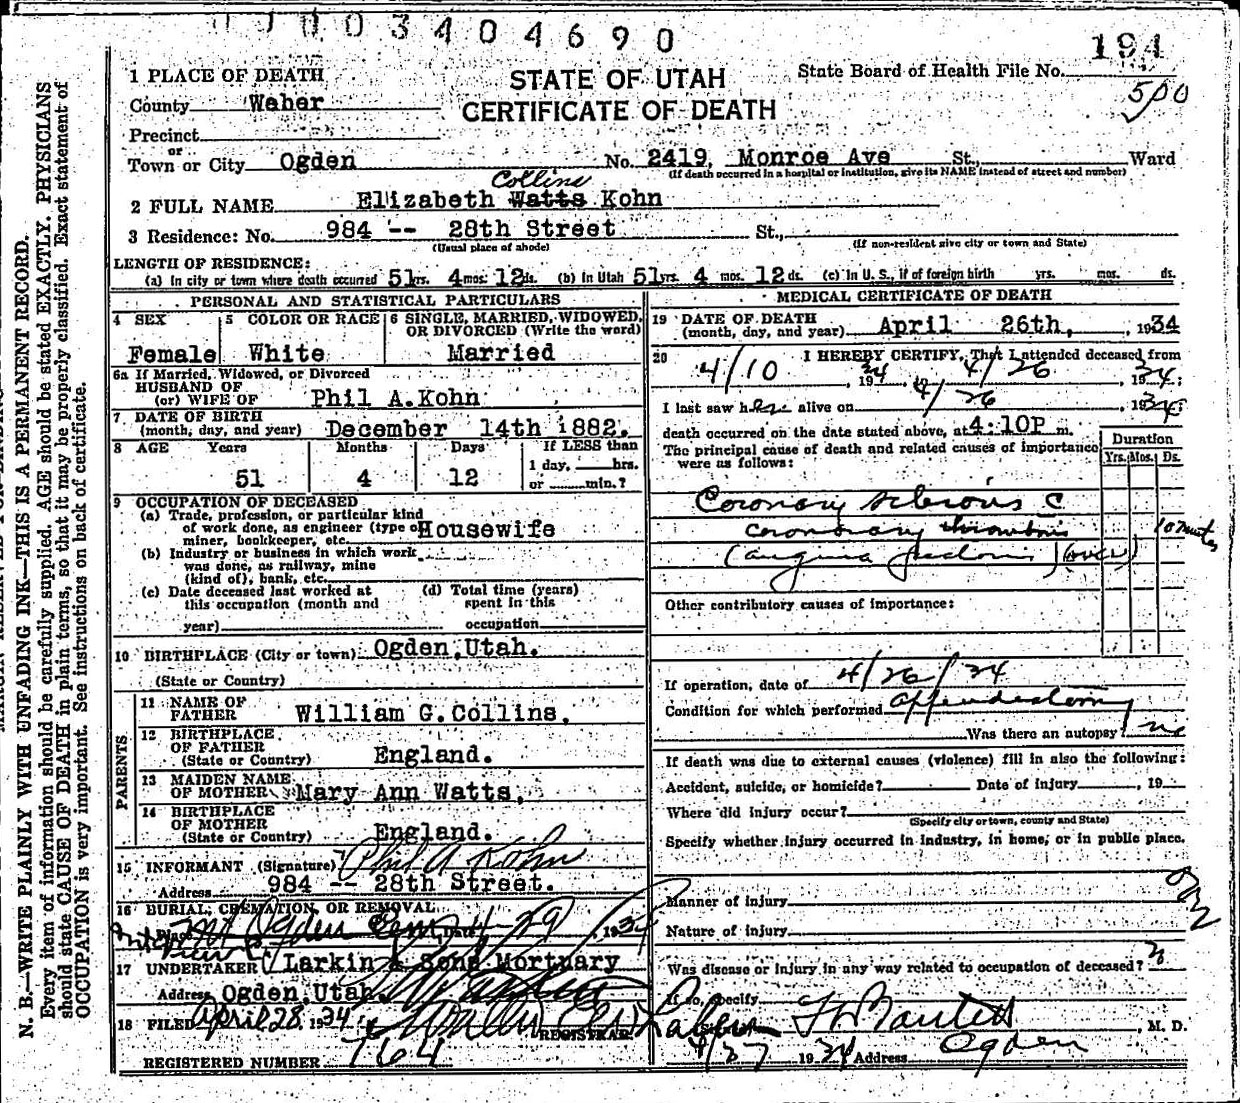 0 0 0 3 4 0 4 6 9 0
194
1 PLACE OF DEATH
STATE OF UTAH
State Board of Health File No.
500
County Weber
CERTIFICATE OF DEATH
Precinct
or
Town or City Ogden No. 2419, Monroe Ave St., Ward
(If death occurred in a hospital or institution, give its NAME instead of street and number)
Collins
2 FULL NAME Elizabeth Watts Kohn
3 Residence: No. 984 -- 28th Street St.,
(Usual place of abode) (If non-resident give city or town and State)
LENGTH OF RESIDENCE:
(a) In city or town where death occurred 51 yrs. 4 mos. 12 ds. (b) In Utah 51 yrs. 4 mos. 12 ds. (c) In U. S., if of foreign birth yrs. mos. ds.
PERSONAL AND STATISTICAL PARTICULARS
4 SEX 5 COLOR OR RACE 6 SINGLE, MARRIED, WIDOWED, OR DIVORCED (Write the word)
Female White Married
6a If Married, Widowed, or Divorced
HUSBAND OF
(or) WIFE OF Phil A.Kohn
7 DATE OF BIRTH
(month, day, and year) December 14th 1882.
8 AGE Years Months Days If LESS than
51 4 12 1 day, hrs.
or min.?
9 OCCUPATION OF DECEASED
(a) Trade, profession, or particular kind
of work done, as engineer (type of Housewife
miner, bookkeeper, etc.
(b) Industry or business in which work
was done, as railway, mine
(kind of), bank, etc.
(c) Date deceased last worked at (d) Total time (years)
this occupation (month and spent in this
year) occupation
10 BIRTHPLACE (City or town) Ogden,Utah.
(State or Country)
PARENTS
11 NAME OF
FATHER William G.Collins.
12 BIRTHPLACE
OF FATHER
(State or Country) England.
13 MAIDEN NAME
OF MOTHER Mary Ann Watts.
14 BIRTHPLACE
OF MOTHER
(State or Country) England.
15 INFORMANT (Signature) Phil A Kohn
Address 984 -- 28th Street.
16 BURIAL, CREMATION, OR REMOVAL
Place Mt Ogden Cem Date 4/29/1934
View
17 UNDERTAKER Larkin & Sons Mortuary
Address Ogden,Utah.
18 FILED April 28, 1934
REGISTRAR
REGISTERED NUMBER 164
MEDICAL CERTIFICATE OF DEATH
19 DATE OF DEATH
(month, day, and year) April 26th, 1934
20 I HEREBY CERTIFY, That I attended deceased from
4/10, 1934, 4/26, 1934;
I last saw her alive on 4/26, 1934
death occurred on the date stated above, at 4:10P m.
The principal cause of death and related causes of importance
were as follows:
Duration
Yrs. Mos. Ds.
Coronary sclerosis c
coronary thrombosis 10 minutes
(angina pectoris) (over)
Other contributory causes of importance:
If operation, date of 4/26/34
Condition for which performed appendectomy
Was there an autopsy? no
If death was due to external causes (violence) fill in also the following:
Accident, suicide, or homicide? Date of injury , 19
Where did injury occur?
(Specify city or town, county and State)
Specify whether injury occurred in industry, in home, or in public place.
Manner of injury
Nature of injury
Was disease or injury in any way related to occupation of deceased?
If so, specify
, M. D.
4/27 1934 Address Ogden
N. B.—WRITE PLAINLY WITH UNFADING INK—THIS IS A PERMANENT RECORD.
Every item of information should be carefully supplied. AGE should be stated EXACTLY. PHYSICIANS
should state CAUSE OF DEATH in plain terms, so that it may be properly classified. Exact statement of
OCCUPATION is very important. See instructions on back of certificate.